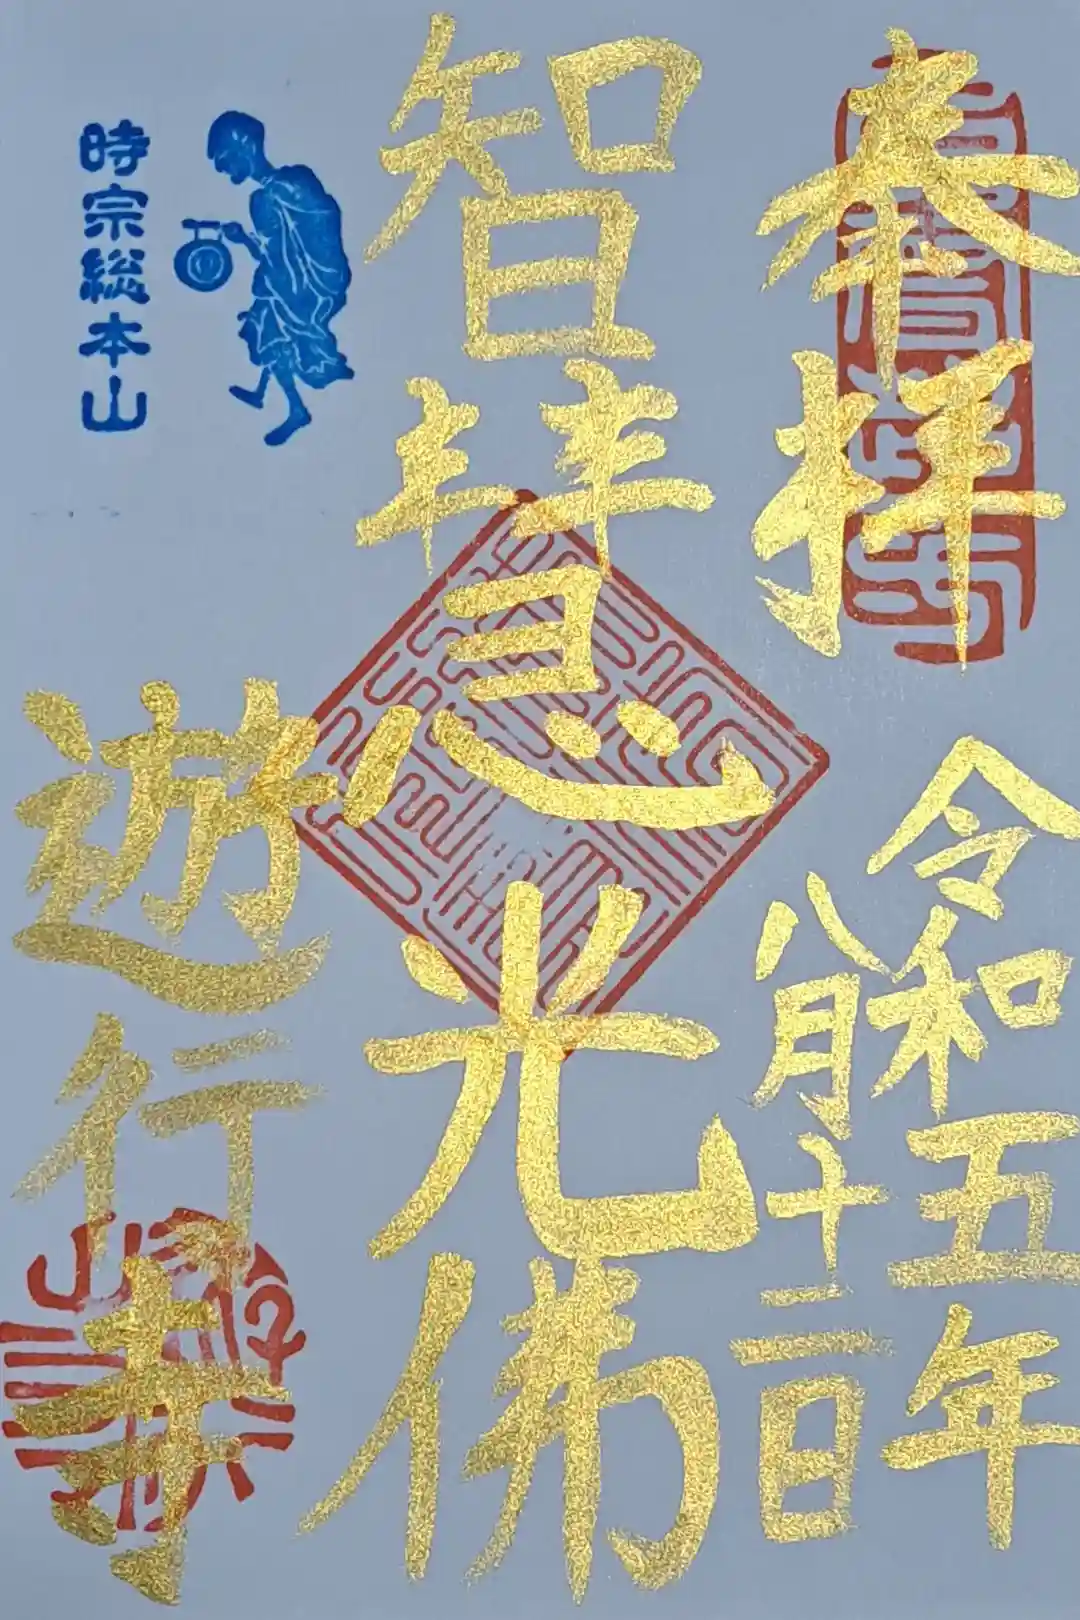 奉拝
令和五年
八月十二日
智慧光佛
時宗総本山
遊行寺